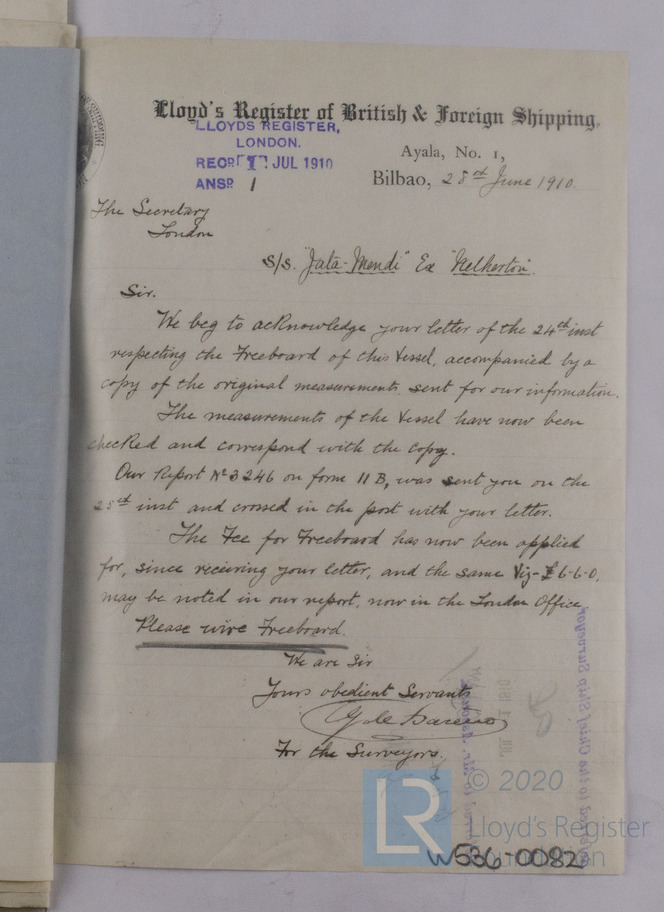 Lloyd's Register of British & Foreign Shipping.
LLOYDS REGISTER,
LONDON.
RECD 1 JUL 1910
ANSD 1
Ayala, No. 1,
Bilbao, 28th June 1910.
The Secretary
London
S/S. "Jata-Mendi" Ex "Nelherton".
Sir.
We beg to acknowledge your letter of the 24th inst
respecting the Freeboard of this Vessel, accompanied by a
copy of the original measurements sent for our information.
The measurements of the Vessel have now been
checked and correspond with the copy.
Our Report No 3246 on form 11 B, was sent you on the
25th inst and crossed in the post with your letter.
The Fee for Freeboard has now been applied
for, since receiving your letter, and the same Viz- £6-6-0,
may be noted in our report, now in the London Office
Please wire Freeboard.
We are Sir
Yours obedient Servants
For the Surveyors.
© 2020
LR
Lloyd's Register
Foundation
W536-0082